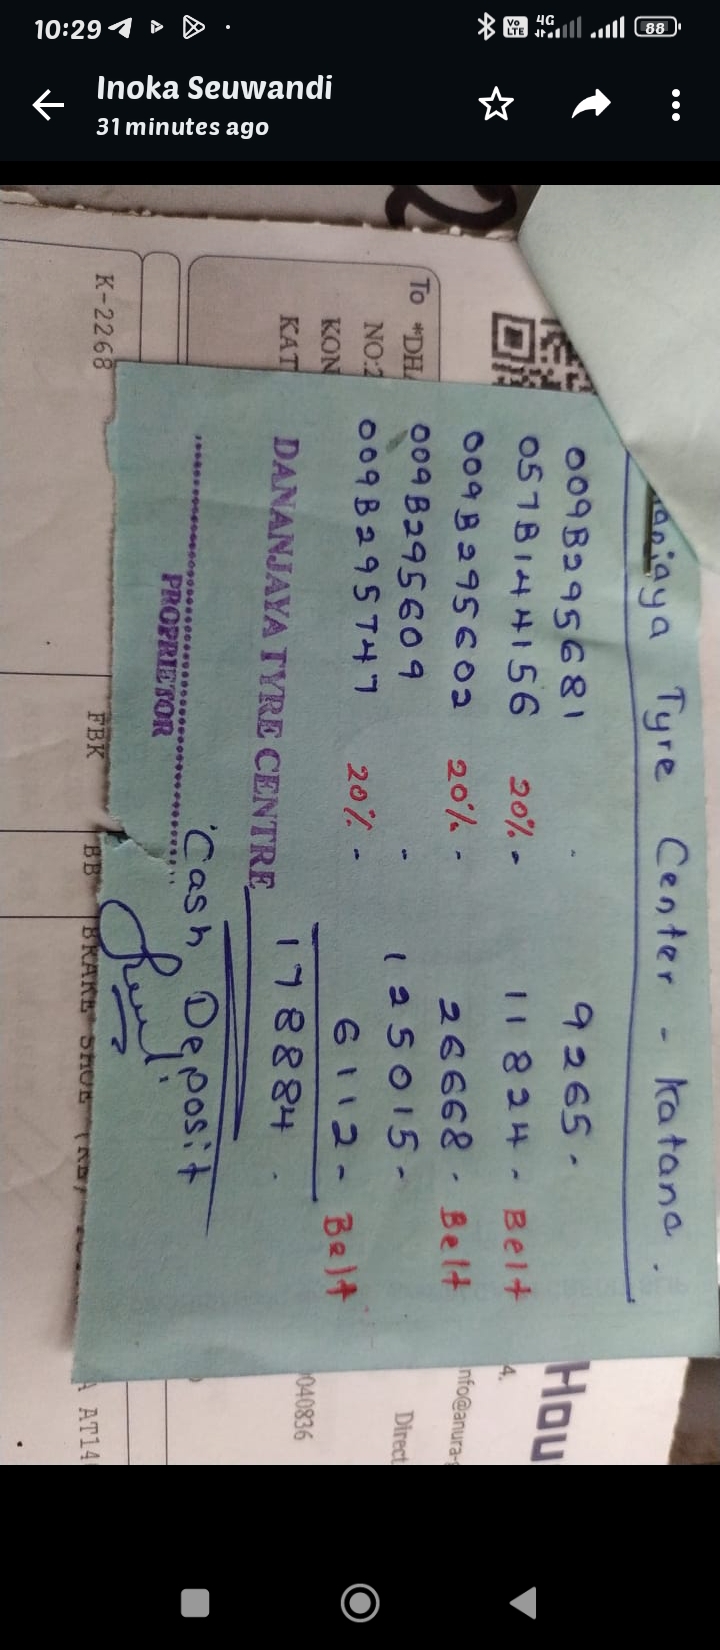 10:29
Vo LTE 4G 88
Inoka Seuwandi
31 minutes ago
anjaya Tyre Center - Katana.
009B295681 - 9265.-
057B144156 20% - 11824.- Belt
009B295602 20% - 26668.- Belt
009B295609 - 125015.-
009B295747 20% - 6112.- Belt
178884.
DANANJAYA TYRE CENTRE
Cash Deposit
PROPRIETOR
To *DHA
NO:2
KON
KAT
K-2268
FBK
BB
BRAKE SHOE (RE)
A AT14
Hou
4.
nfo@anura-
Direct
040836